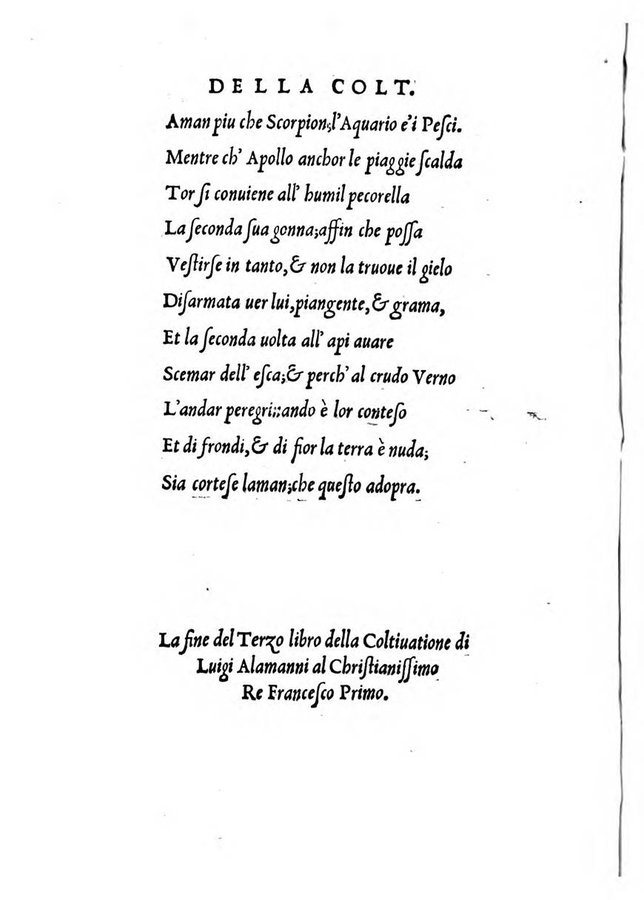 DELLA COLT.
Aman piu che Scorpion;l'Aquario e'i Peſci.
Mentre ch' Apollo anchor le piaggie ſcalda
Tor ſi conuiene all' humil pecorella
La ſeconda ſua gonna;affin che poſſa
Veſtirſe in tanto,& non la truoue il gielo
Diſarmata uer lui,piangente,& grama,
Et la ſeconda uolta all' api auare
Scemar dell' eſca;& perch' al crudo Verno
L'andar peregrinando è lor conteſo
Et di frondi,& di fior la terra è nuda;
Sia corteſe laman;che queſto adopra.
La fine del Terzo libro della Coltiuatione di
Luigi Alamanni al Chriſtianiſſimo
Re Franceſco Primo.